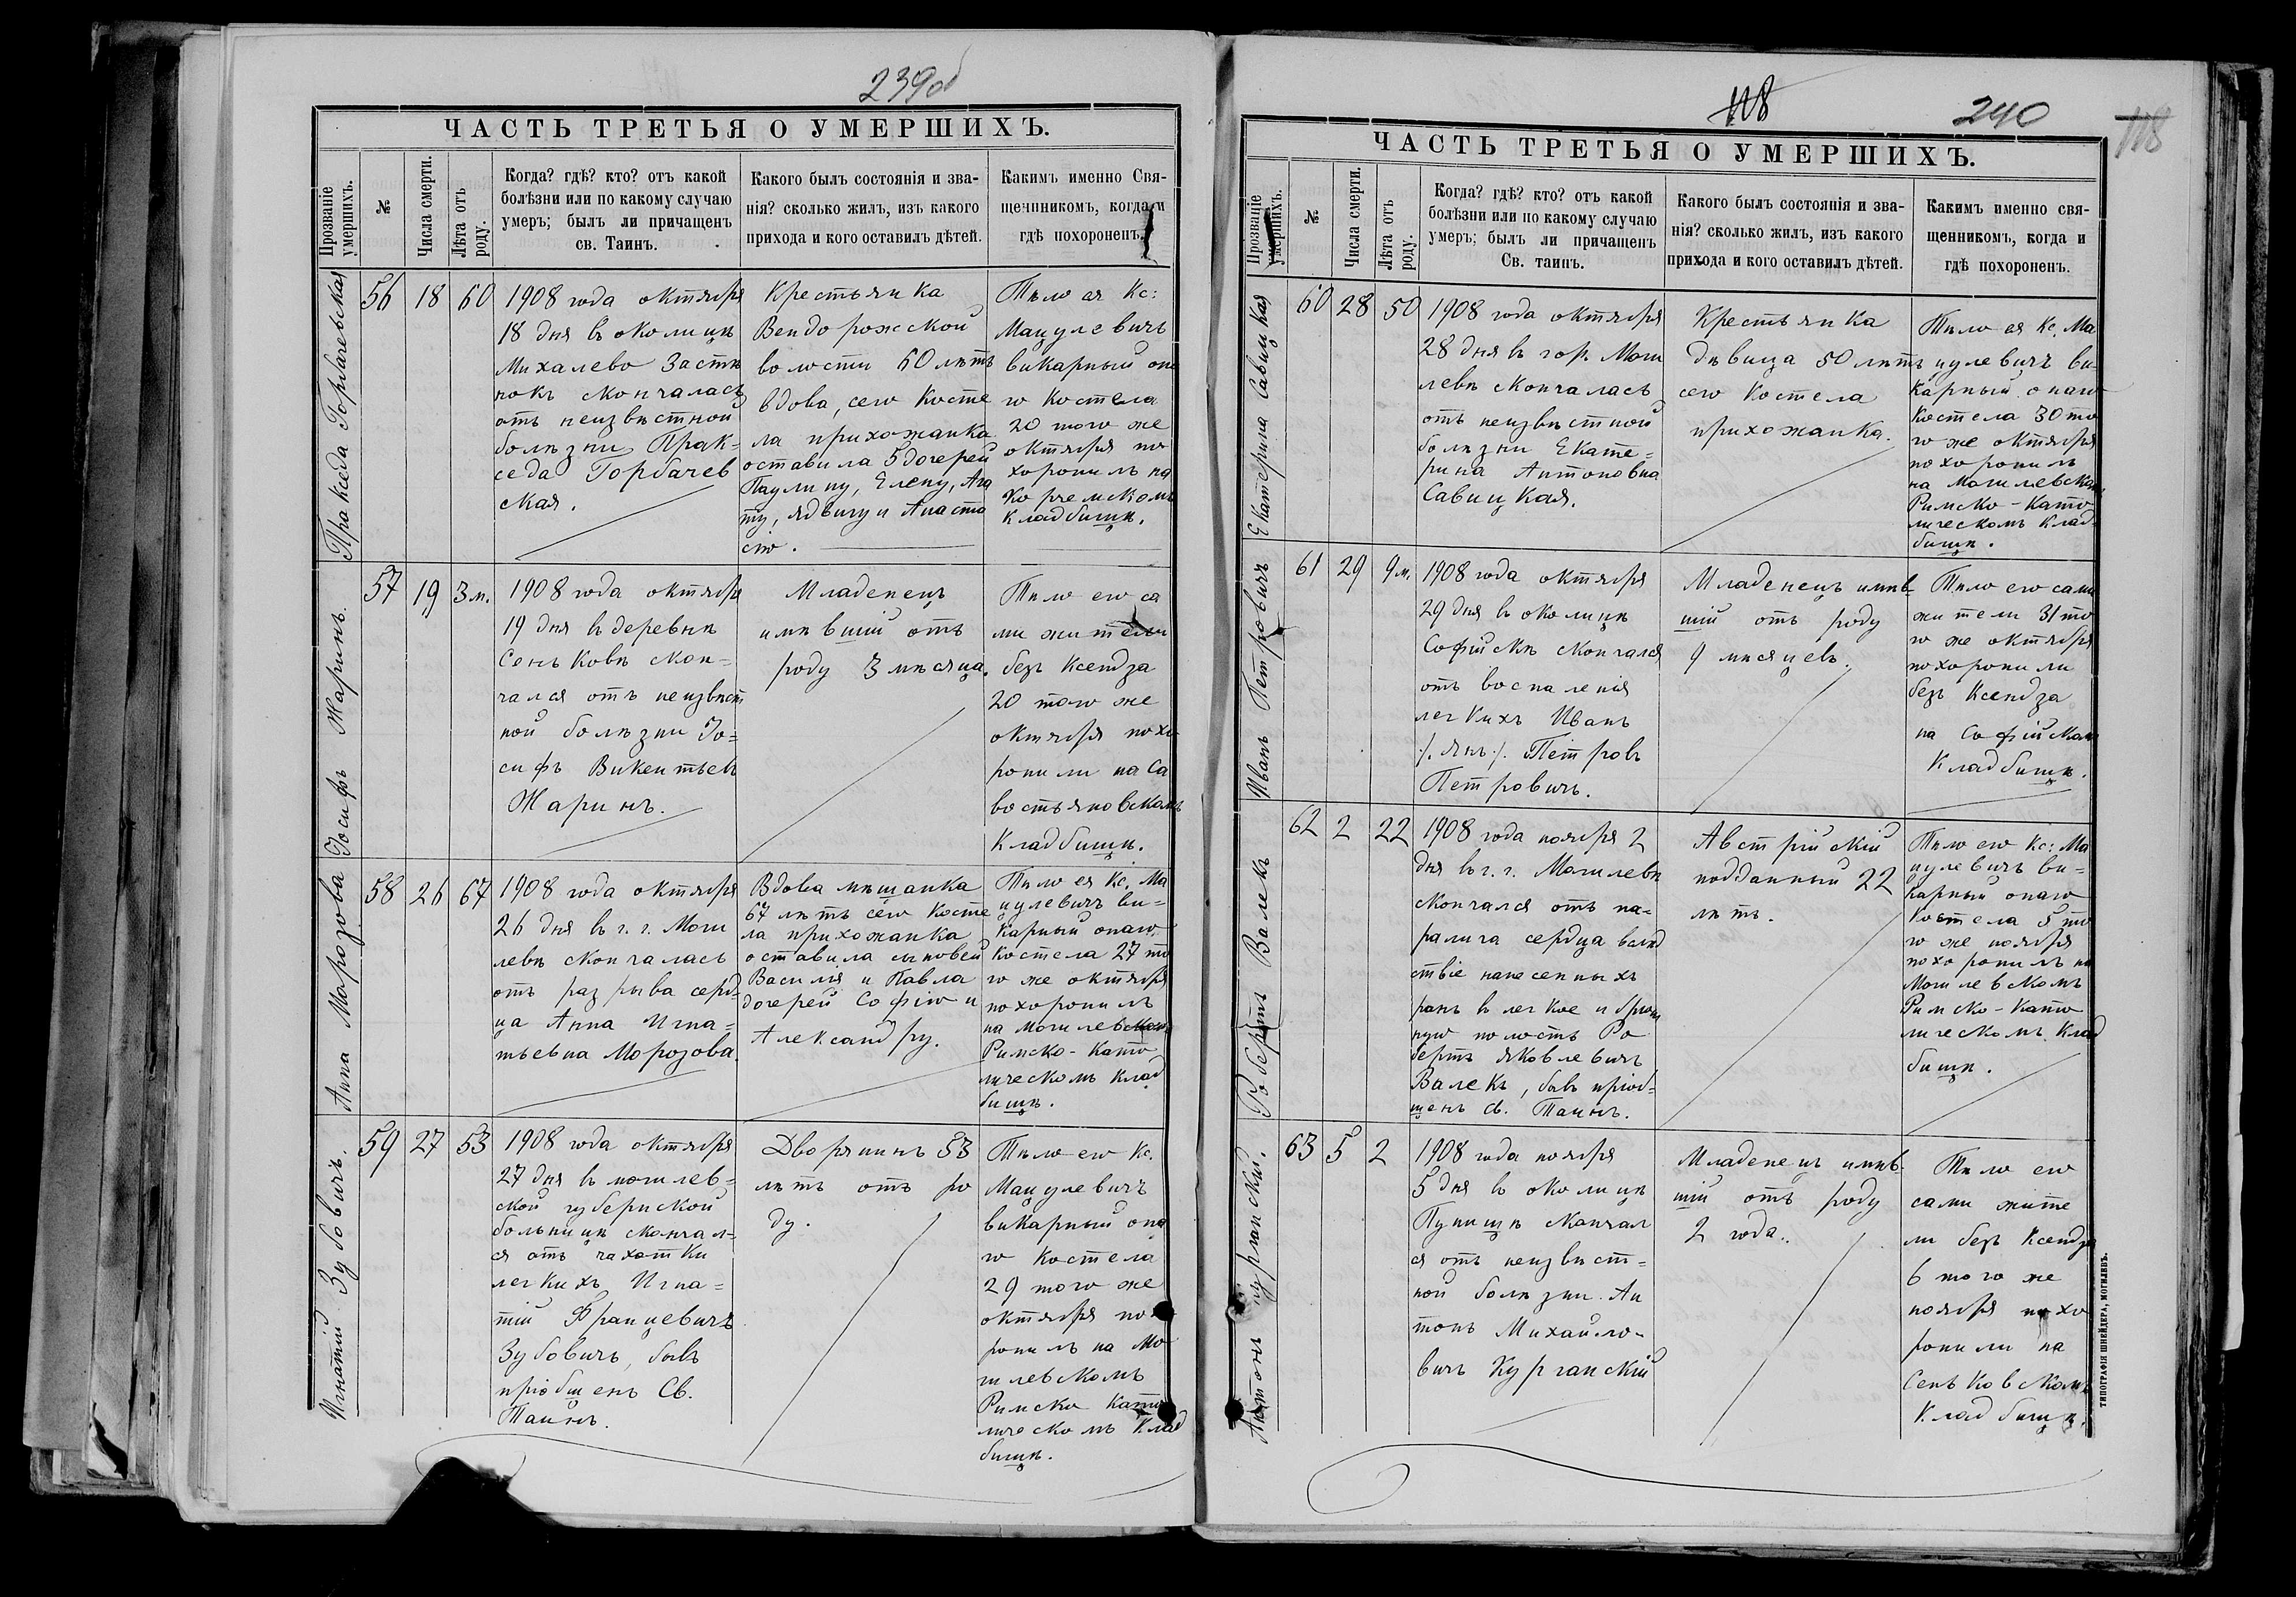 239об
ЧАСТЬ ТРЕТЬЯ О УМЕРШИХЪ.
Прозваніе умершихъ.
№
Числа смерти.
Лѣта отъ роду.
Когда? гдѣ? кто? отъ какой
болѣзни или по какому случаю
умеръ; былъ ли причащенъ
св. Таинъ.
Какого былъ состоянія и зва-
нія? сколько жилъ, изъ какого
прихода и кого оставилъ дѣтей.
Какимъ именно Свя-
щенникомъ, когда и
гдѣ похороненъ.
Пракседа Горбачевская
56
18
60
1908 года октября
18 дня въ околицѣ
Михалево Застѣ
нокъ скончалась
отъ неизвѣстной
болѣзни Прак-
седа Горбачев
ская.
Крестьянка
Вендорожской
волости 60 лѣтъ
вдова, сего Косте
ла прихожанка
оставила 5 дочерей
Паулину, Елену, Ага
ту, Ядвигу и Анаста
сію.
Тѣло ея Кс:
Мацулевичъ
викарный она
го Костела
20 того же
октября по
хоронилъ на
Корчемскомъ
Кладбищѣ.
Іосифъ Жаринъ.
57
19
3 м.
1908 года октября
19 дня въ деревнѣ
Сеньковѣ скон=
чался отъ неизвѣст
ной болѣзни Іо=
сифъ Викентьевъ
Жаринъ.
Младенецъ
имѣвшій отъ
роду 3 мѣсяца.
Тѣло его са
ми жители
безъ Ксендза
20 того же
октября похо
ронили на Са
востьяновскомъ
Кладбищѣ.
Анна Морозова
58
26
67
1908 года октября
26 дня въ г. г. Моги
левѣ скончалась
отъ разрыва серд-
ца Анна Игна=
тьевна Морозова.
Вдова мѣщанка
67 лѣтъ сего Косте
ла прихожанка
оставила сыновей
Василія и Павла
дочерей Софію и
Александру.
Тѣло ея Кс. Ма
цулевичъ ви=
карный онаго
Костела 27 то
го же октября
похоронилъ
на Могилевскомъ
Римско-Като
лическомъ Клад
бищѣ.
Игнатій Зубовичъ.
59
27
53
1908 года октября
27 дня въ могилев=
ской губернской
больницѣ скончал-
ся отъ чахотки
легкихъ Игна=
тій Францевичъ
Зубовичъ, бывъ
пріобщенъ Св.
Таинъ.
Дворянинъ 53
лѣтъ отъ ро
ду.
Тѣло его Кс.
Мацулевичъ
викарный она
го Костела
29 того же
октября похо
ронилъ на Мо
гилевскомъ
Римско Като
лическомъ Клад
бищѣ.
118
240
118
ЧАСТЬ ТРЕТЬЯ О УМЕРШИХЪ.
Прозваніе умершихъ.
№
Числа смерти.
Лѣта отъ роду.
Когда? гдѣ? кто? отъ какой
болѣзни или по какому случаю
умеръ; былъ ли причащенъ
Св. таинъ.
Какого былъ состоянія и зва-
нія? сколько жилъ, изъ какого
прихода и кого оставилъ дѣтей.
Какимъ именно свя-
щенникомъ, когда и
гдѣ похороненъ.
Екатерина Савицкая
60
28
50
1908 года октября
28 дня въ гор. Моги
левѣ скончалась
отъ неизвѣстной
болѣзни Екате=
рина Антоновна
Савицкая.
Крестьянка
дѣвица 50 лѣтъ
сего Костела
прихожанка.
Тѣло ея Кс. Ма
цулевичъ ви-
карный онаго
Костела 30 то
го же октября
похоронилъ
на Могилевскомъ
Римско-Като
лическомъ Клад-
бищѣ.
Иванъ Петровичъ
61
29
9 м.
1908 года октября
29 дня въ околицѣ
Софійскѣ скончался
отъ воспаленія
легкихъ Иванъ
/. Янъ ./. Петровъ
Петровичъ.
Младенецъ имѣв-
шій отъ роду
9 мѣсяцевъ.
Тѣло его сами
жители 31 то
го же октября
похоронили
безъ Ксендза
на Софійскомъ
Кладбищѣ.
Робертъ Валекъ
62
2
22
1908 года ноября 2
дня въ г. г. Могилевѣ
скончался отъ па=
ралича сердца вслѣд
ствіе нанесенныхъ
ранъ въ легкое и брюш
ную полость Ро
бертъ Яковлевичъ
Валекъ, бывъ пріоб=
щенъ Св. Таинъ.
Австрійскій
подданный 22
лѣтъ.
Тѣло его Кс: Ма
цулевичъ ви=
карный онаго
Костела 5 то
го же ноября
похоронилъ на
Могилевскомъ
Римско-Като
лическомъ Клад
бищѣ.
Антонъ Курганскій.
63
5
2
1908 года ноября
5 дня въ околицѣ
Пунищѣ скончал
ся отъ неизвѣст=
ной болѣзни Ан
тонъ Михайло-
вичъ Курганскій
Младенецъ имѣв-
шій отъ роду
2 года.
Тѣло его
сами жите
ли безъ Ксендза
6 того же
ноября похо
ронили на
Сеньковскомъ
Кладбищѣ.
ТИПОГРАФІЯ ШНЕЙДЕРА, МОГИЛЕВЪ.